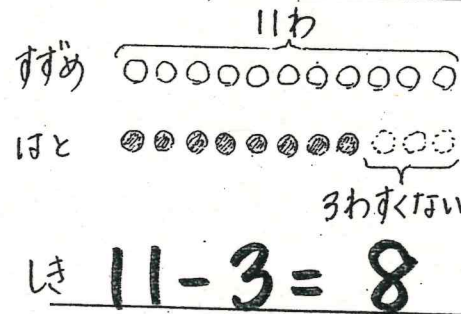 11わ
すずめ
はと
3わすくない
しき 11-3=8